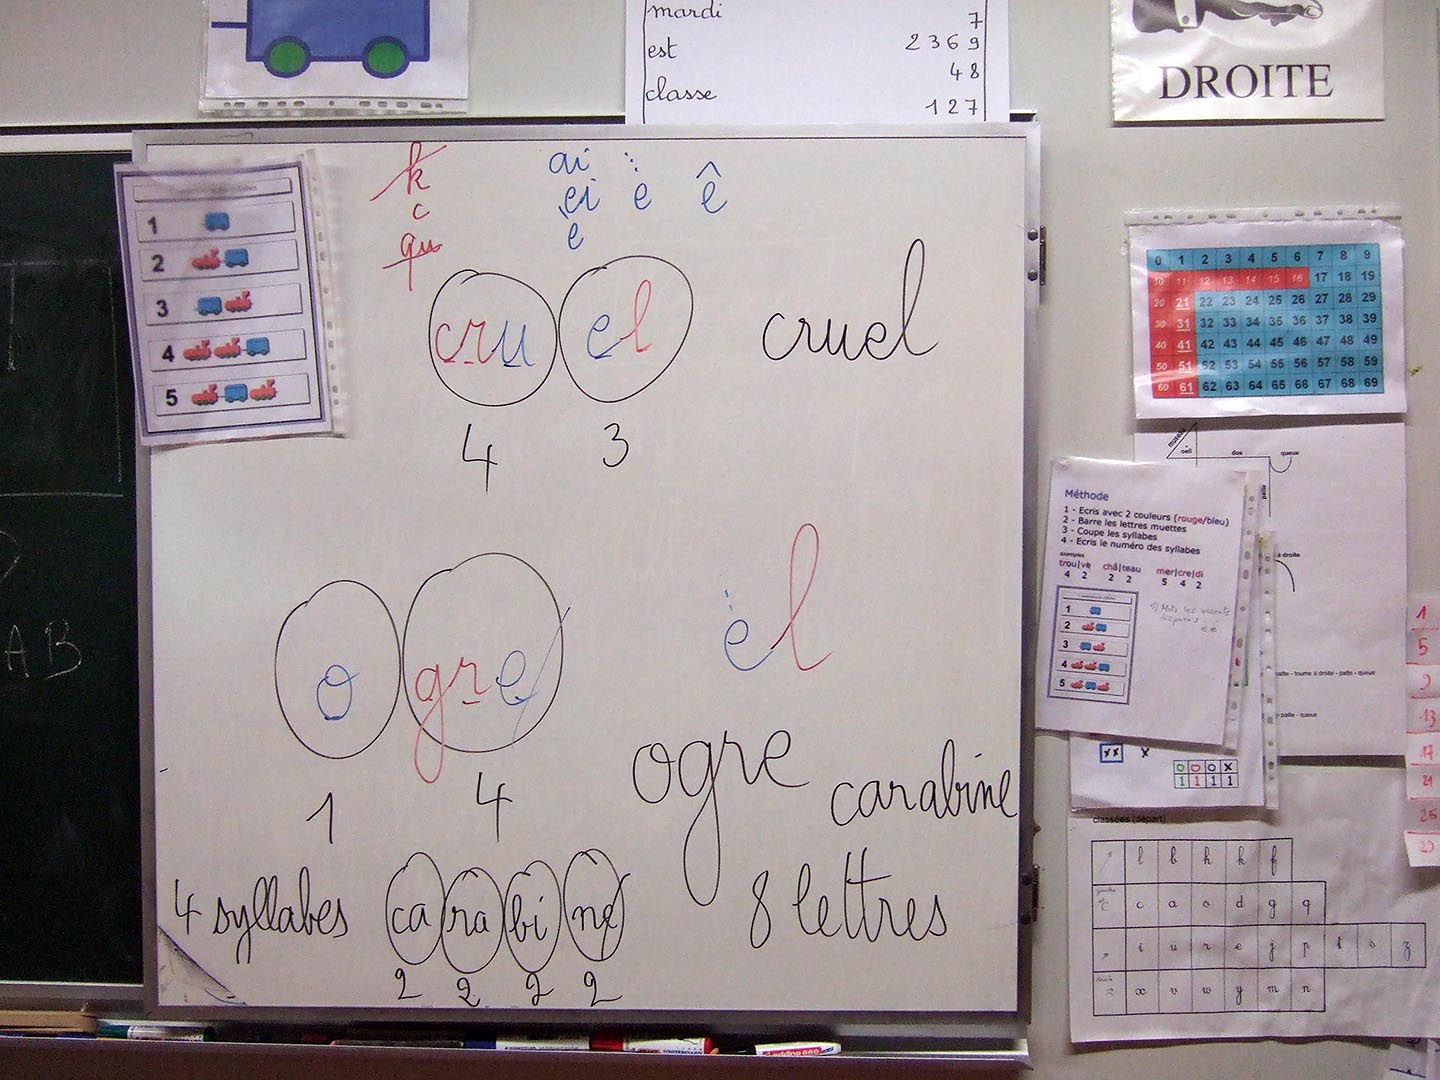 mardi 7
est 2369
48
classe 127
DROITE
k
c
qu
ai
ei
è
ë
ê
1
2
3
4
5
cru el cruel
4 3
ël
o gre ogre
1 4
carabine
4 syllabes ca ra bi ne 8 lettres
2 2 2 2
AB
0 1 2 3 4 5 6 7 8 9
10 11 12 13 14 15 16 17 18 19
20 21 22 23 24 25 26 27 28 29
30 31 32 33 34 35 36 37 38 39
40 41 42 43 44 45 46 47 48 49
50 51 52 53 54 55 56 57 58 59
60 61 62 63 64 65 66 67 68 69
museau
oeil dos queue
patte
Méthode
1 - Ecris avec 2 couleurs (rouge/bleu)
2 - Barre les lettres muettes
3 - Coupe les syllabes
4 - Ecris le numéro des syllabes
exemples
trou|ve châ|teau mer|cre|di
4 2 2 2 5 4 2
1
2
3
4
5
à droite
patte - tourne à droite - patte - queue
patte - queue
O O O X
1 1 1 1
1
5
9
13
17
21
25
29
classées (départ)
l b h k f
c a o d g q
i u r e j p t s z
x v w y m n
edding 660